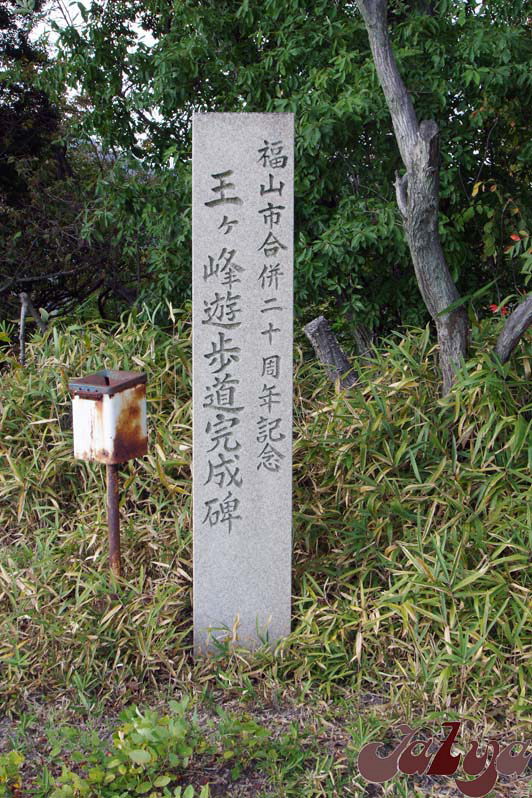 福山市合併二十周年記念
王ヶ峰遊歩道完成碑
JaZya